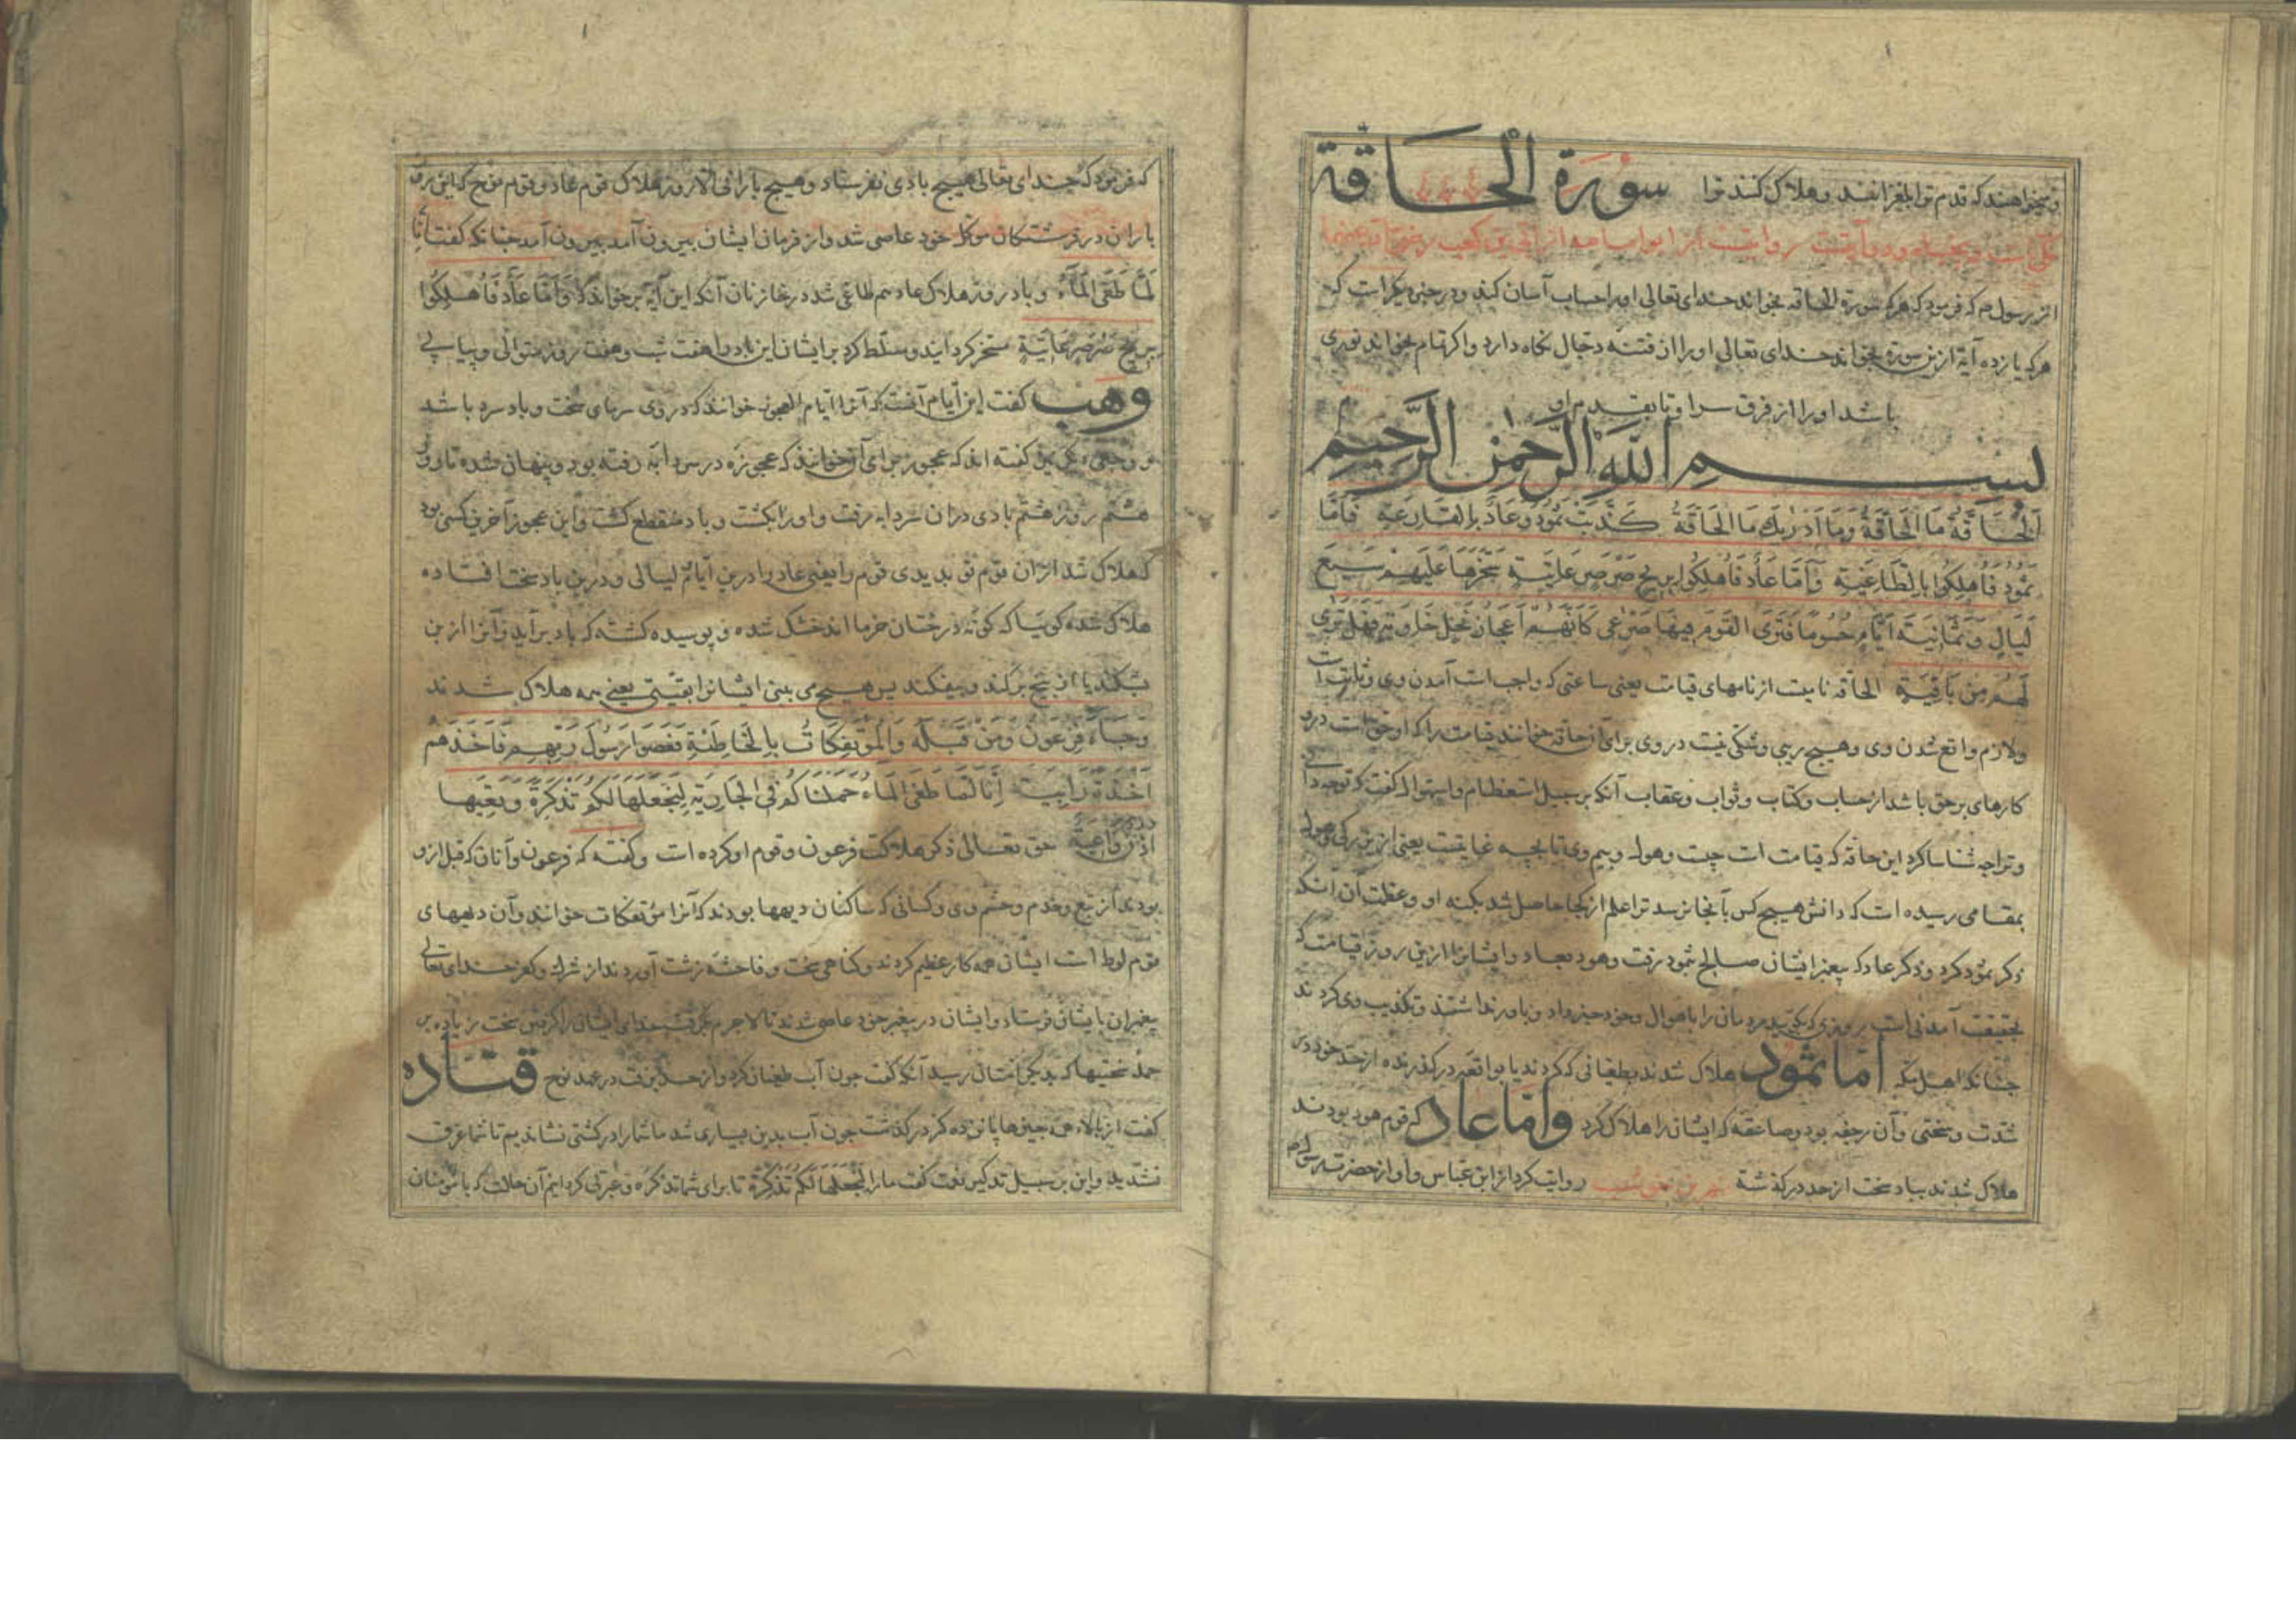 و میخواهند که قدم ترا بلغزانند و هلاک کنند ترا سورة الحاقة
از رسول صم که فرمود که هر که سورة الحاقه بخواند خدای تعالی او را حساب آسان کند و در خبر دیگر است که
هر که یازده آیة ازین سورة بخواند خدای تعالی او را از فتنه دجال نگاه دارد و اگر تمام بخواند نوری
باشد او را از فرق سر او تا بقدم او
بسم الله الرحمن الرحيم
اَلْحَاقَّةُ مَا الْحَاقَّةُ وَمَا اَدْرٰيكَ مَا الْحَاقَّةُ كَذَّبَتْ ثَمُودُ وَعَادٌ بِالْقَارِعَةِ فَاَمَّا
ثَمُودُ فَاُهْلِكُوا بِالطَّاغِيَةِ وَاَمَّا عَادٌ فَاُهْلِكُوا بِرِيحٍ صَرْصَرٍ عَاتِيَةٍ سَخَّرَهَا عَلَيْهِمْ سَبْعَ
لَيَالٍ وَثَمَانِيَةَ اَيَّامٍ حُسُومًا فَتَرَى الْقَوْمَ فِيهَا صَرْعٰى كَاَنَّهُمْ اَعْجَازُ نَخْلٍ خَاوِيَةٍ فَهَلْ تَرٰى
لَهُمْ مِنْ بَاقِيَةٍ الحاقه نامیست از نامهای قیامت یعنی ساعتی که واجب است آمدن وی و ثابت است
ولازم واقع شدن وی وهیچ ریبی و شکی نیست در وی برای آن حاقه خوانند قیامت را که او حق است در وی
کارهای بر حق باشد از حساب و کتاب و ثواب و عقاب آنکه بر سبیل استعظام و استهوال گفت که تو چه دانی
و ترا چه شناسا کرد این حاقه که قیامت است چیست وهول و بیم وی تا بچه غایتست یعنی از بزرکی وهول
بمقامی رسیده است که دانش هیچ کس بآنجا نرسد ترا علم از کجا حاصل شد بکنه او و عظمت آن آنکه
ذکر ثمود کرد و ذکر عاد که پیغمبر ایشان صالح ثمود رفت وهود بعاد و ایشانرا ازین روز قیامت که
بحقیقت آمدنی است مردمان را باهوال وجود خبر داد و باور نداشتند و تکذیب وی کردند
چنانکه اهل مکه اما ثمود هلاک شدند بطغیانی که کردند یا بواقعه در گذرنده از حد خود در
شدت و سختی و آن رجفه بود و صاعقه که ایشان را هلاک کرد و اما عاد که قوم هود بودند
هلاک شدند بباد سخت از حد در گذشته روایت کرد از ابن عباس و او از حضرت رسول صم
که فرمود که خدای تعالی هیچ بادی نفرستاد و هیچ بارانی الا روز هلاک قوم عاد و قوم نوح که این روز
باران در فرشتکان موکل خود عاصی شد و از فرمان ایشان بیرون آمد بیرون آمد چنانکه گفت اِنَّا
لَمَّا طَغَى الْمَاءُ و باد روز هلاک عاد هم طاغی شد در خازنان آنکه این آیه برخواند که وَاَمَّا عَادٌ فَاُهْلِكُوا
بِرِيحٍ صَرْصَرٍ عَاتِيَةٍ مسخر کردانید و مسلط کرد بر ایشان این باد را هفت شب و هشت روز متوالی و پیاپی
وهب گفت این ایام آنست که آنرا ایام العجوز خوانند که در وی سرمای سخت و باد سرد باشد
گفته اند که عجوز برای آن خوانند که عجوزه در سردابه رفته بود و پنهان شده تا روز
هشتم روز هشتم بادی در آن سردابه رفت و او را بکشت و باد منقطع گشت و این عجوز آخرین کسی بود
که هلاک شد از آن قوم تو بدیدی قوم را یعنی عاد را درین ایام و لیالی و درین باد سخت افتاده
هلاک شده گویا که کونه درختان خرما اند خشک شده و پوسیده گشته که باد برآید و آنرا از بن
بشکند یا از بیخ برکند و بیفکند پس هیچ می بینی ایشانرا بقیتی یعنی همه هلاک شدند
وَجَاءَ فِرْعَوْنُ وَمَنْ قَبْلَهُ وَالْمُؤْتَفِكَاتُ بِالْخَاطِئَةِ فَعَصَوْا رَسُولَ رَبِّهِمْ فَاَخَذَهُمْ
اَخْذَةً رَابِيَةً اِنَّا لَمَّا طَغَى الْمَاءُ حَمَلْنَاكُمْ فِي الْجَارِيَةِ لِنَجْعَلَهَا لَكُمْ تَذْكِرَةً وَتَعِيَهَا
اُذُنٌ وَاعِيَةٌ حق تعالی ذکر هلاکت فرعون و قوم او کرده است و گفته که فرعون و آنان که قبل از و
بودند از تبع و خدم و حشم وی و کسانی که ساکنان دیهها بودند که آنرا مؤتفکات خوانند و آن دیههای
قوم لوط است ایشان همه کار عظیم کردند و گناهی سخت و فاحشه زشت آوردند از شرک و کفر خدای تعالی
پیغمبران بایشان فرستاد و ایشان در پیغمبر خود عاصی شدند تا لاجرم بگرفت خدای ایشان را گرفتن سخت زیاده بر
همه سختیها که بدیگر امتان رسید آنکه گفت چون آب طغیان کرد و از حد برفت در عهد نوح قتاده
گفت از بالاء همه چیزها پانزده گز در گذشت چون آب بدین بسیاری شد ما شما را در کشتی نشاندیم تا شما غرق
نشدید و این بر سبیل تذکیر نعمت گفت ما را لِنَجْعَلَهَا لَكُمْ تَذْكِرَةً تا برای شما تذکره و عبرتی کردانیم آن حالت که با مؤمنان